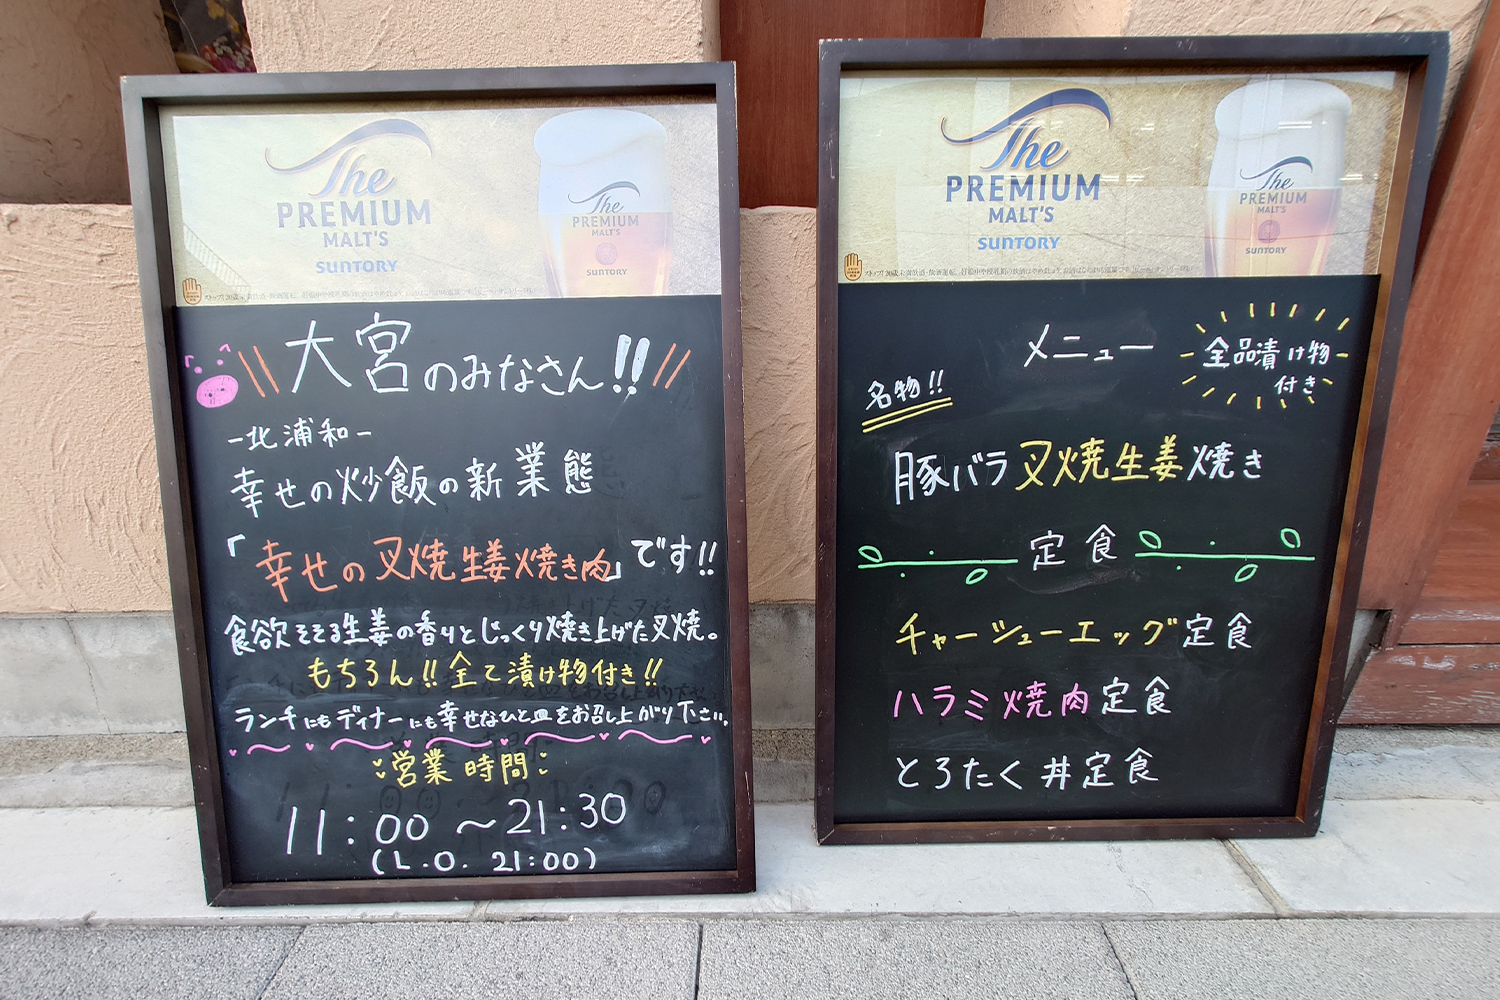 The
PREMIUM
MALT'S
SUNTORY
The
PREMIUM
MALT'S
SUNTORY
大宮のみなさん!!
-北浦和-
幸せの炒飯の新業態
「幸せの叉焼生姜焼き肉」です!!
食欲そそる生姜の香りとじっくり焼き上げた叉焼。
もちろん!!全て漬け物付き!!
ランチにもディナーにも幸せなひと皿をお召し上がり下さい。
営業時間
11:00~21:30
(L.O. 21:00)
The
PREMIUM
MALT'S
SUNTORY
The
PREMIUM
MALT'S
SUNTORY
メニュー
全品漬け物
付き
名物!!
豚バラ叉焼生姜焼き
定食
チャーシューエッグ定食
ハラミ焼肉定食
とろたく丼定食